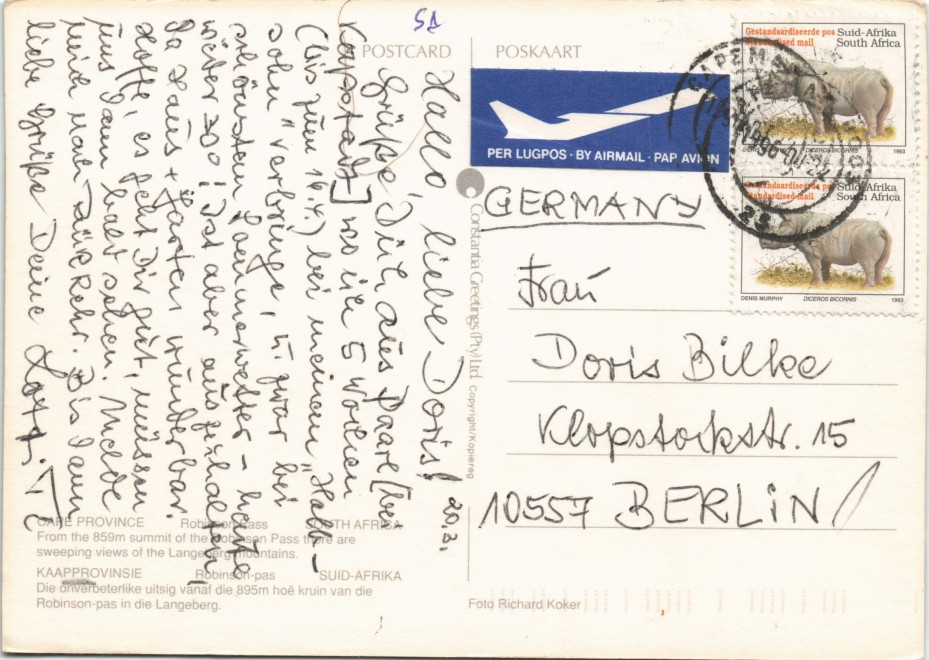 SA
POSTCARD
POSKAART
Hallo, liebe Doris!
20.3.
Grüße Dich aus Paarl [bei
Kapstadt], wo ich 5 Wochen
(bis zum 16.4.) bei meinem "Halb-
sohn" verbringe, u. zwar bei
schönstem Sommerwetter – heute
wieder 30°! Ist aber auszuhalten,
da Haus + Garten wunderbar.
Hoffe, es geht Dir gut, müssen
uns dann bald sehen. Melde
mich nach Rückkehr. Bis dann
liebe Grüße Deine
PER LUGPOS · BY AIRMAIL · PAR AVION
Gestandaardiseerde pos
Standardised mail
Suid-Afrika
South Africa
DICEROS BICORNIS
1993
Gestandaardiseerde pos
Standardised mail
Suid-Afrika
South Africa
DENIS MURPHY
DICEROS BICORNIS
1993
GERMANY
Frau
Doris Bilke
Klopstockstr. 15
10557 BERLIN
Constantia Greetings (Pty) Ltd. Copyright/Kopiereg
CAPE PROVINCE Robinson Pass SOUTH AFRICA
From the 859m summit of the Robinson Pass there are
sweeping views of the Langeberg mountains.
KAAPPROVINSIE Robinson-pas SUID-AFRIKA
Die onverbeterlike uitsig vanaf die 895m hoë kruin van die
Robinson-pas in die Langeberg.
Foto Richard Koker